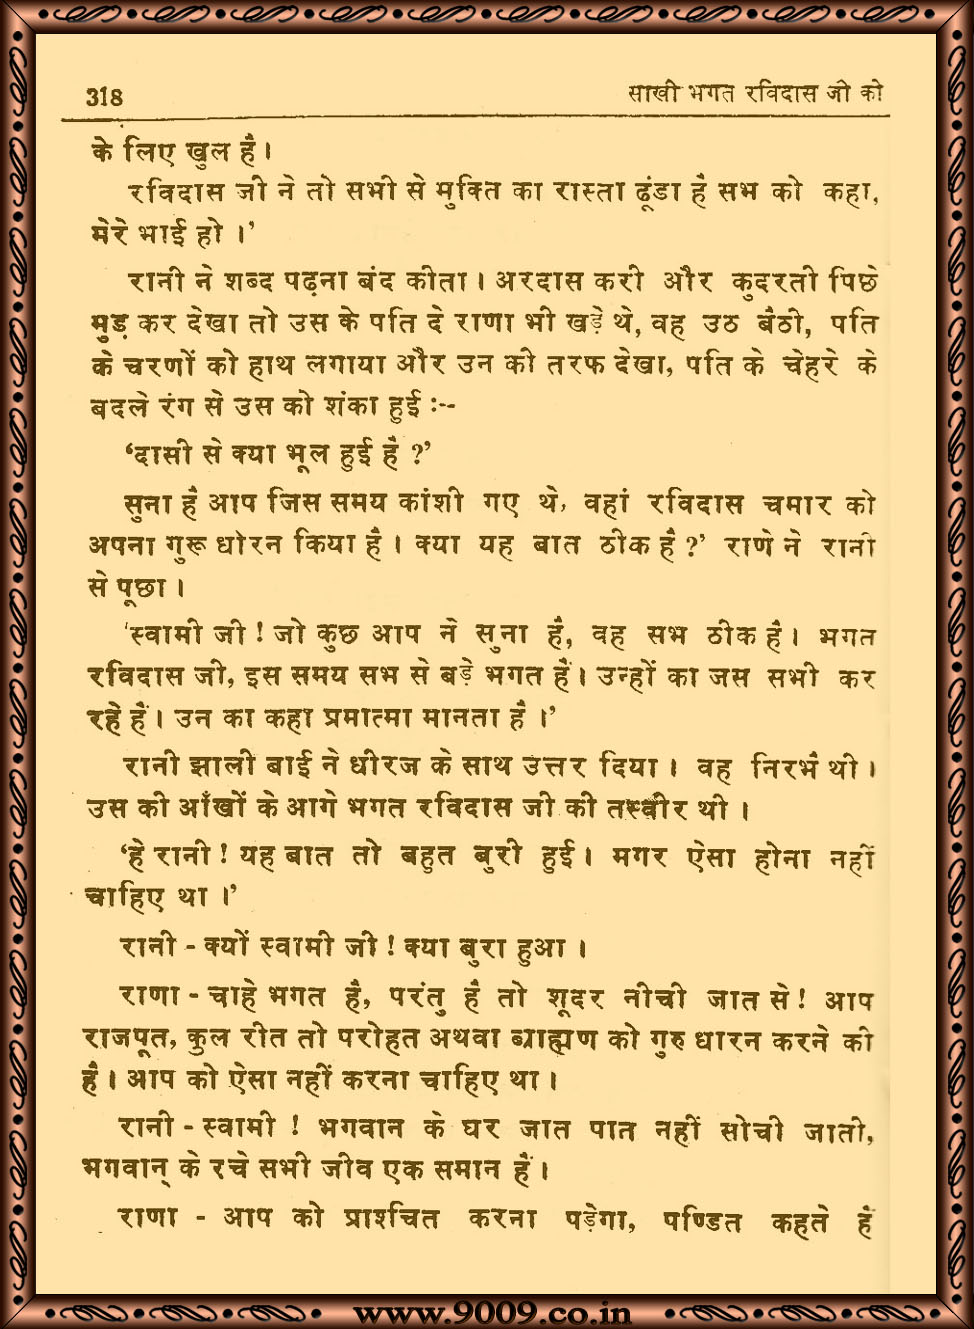 318 साखी भगत रविदास जी को
के लिए खुल है।
रविदास जी ने तो सभी से मुक्ति का रास्ता ढूंडा है सभ को कहा,
मेरे भाई हो ।’
रानी ने शब्द पढ़ना बंद कीता । अरदास करी और कुदरती पिछे
मुड़ कर देखा तो उस के पति दे राणा भी खड़े थे, वह उठ बैठी, पति
के चरणों को हाथ लगाया और उन की तरफ देखा, पति के चेहरे के
बदले रंग से उस को शंका हुई :--
‘दासी से क्या भूल हुई है ?’
सुना है आप जिस समय कांशी गए थे, वहां रविदास चमार को
अपना गुरू धारन किया है । क्या यह बात ठीक है ?’ राणे ने रानी
से पूछा ।
‘स्वामी जी ! जो कुछ आप ने सुना है, वह सभ ठीक है । भगत
रविदास जी, इस समय सभ से बड़े भगत हैं । उन्हों का जस सभी कर
रहे हैं । उन का कहा प्रमात्मा मानता है ।’
रानी झाली बाई ने धीरज के साथ उत्तर दिया । वह निरभै थी ।
उस की आँखों के आगे भगत रविदास जी की तस्वीर थी ।
‘हे रानी ! यह बात तो बहुत बुरी हुई । मगर ऐसा होना नहीं
चाहिए था ।’
रानी - क्यों स्वामी जी ! क्या बुरा हुआ ।
राणा - चाहे भगत है, परंतु है तो शूदर नीची जात से ! आप
राजपूत, कुल रीत तो परोहत अथवा ब्राह्मण को गुरु धारन करने की
है । आप को ऐसा नहीं करना चाहिए था ।
रानी - स्वामी ! भगवान के घर जात पात नहीं सोची जाती,
भगवान् के रचे सभी जीव एक समान हैं ।
राणा - आप को प्राश्चित करना पड़ेगा, पण्डित कहते है
www.9009.co.in